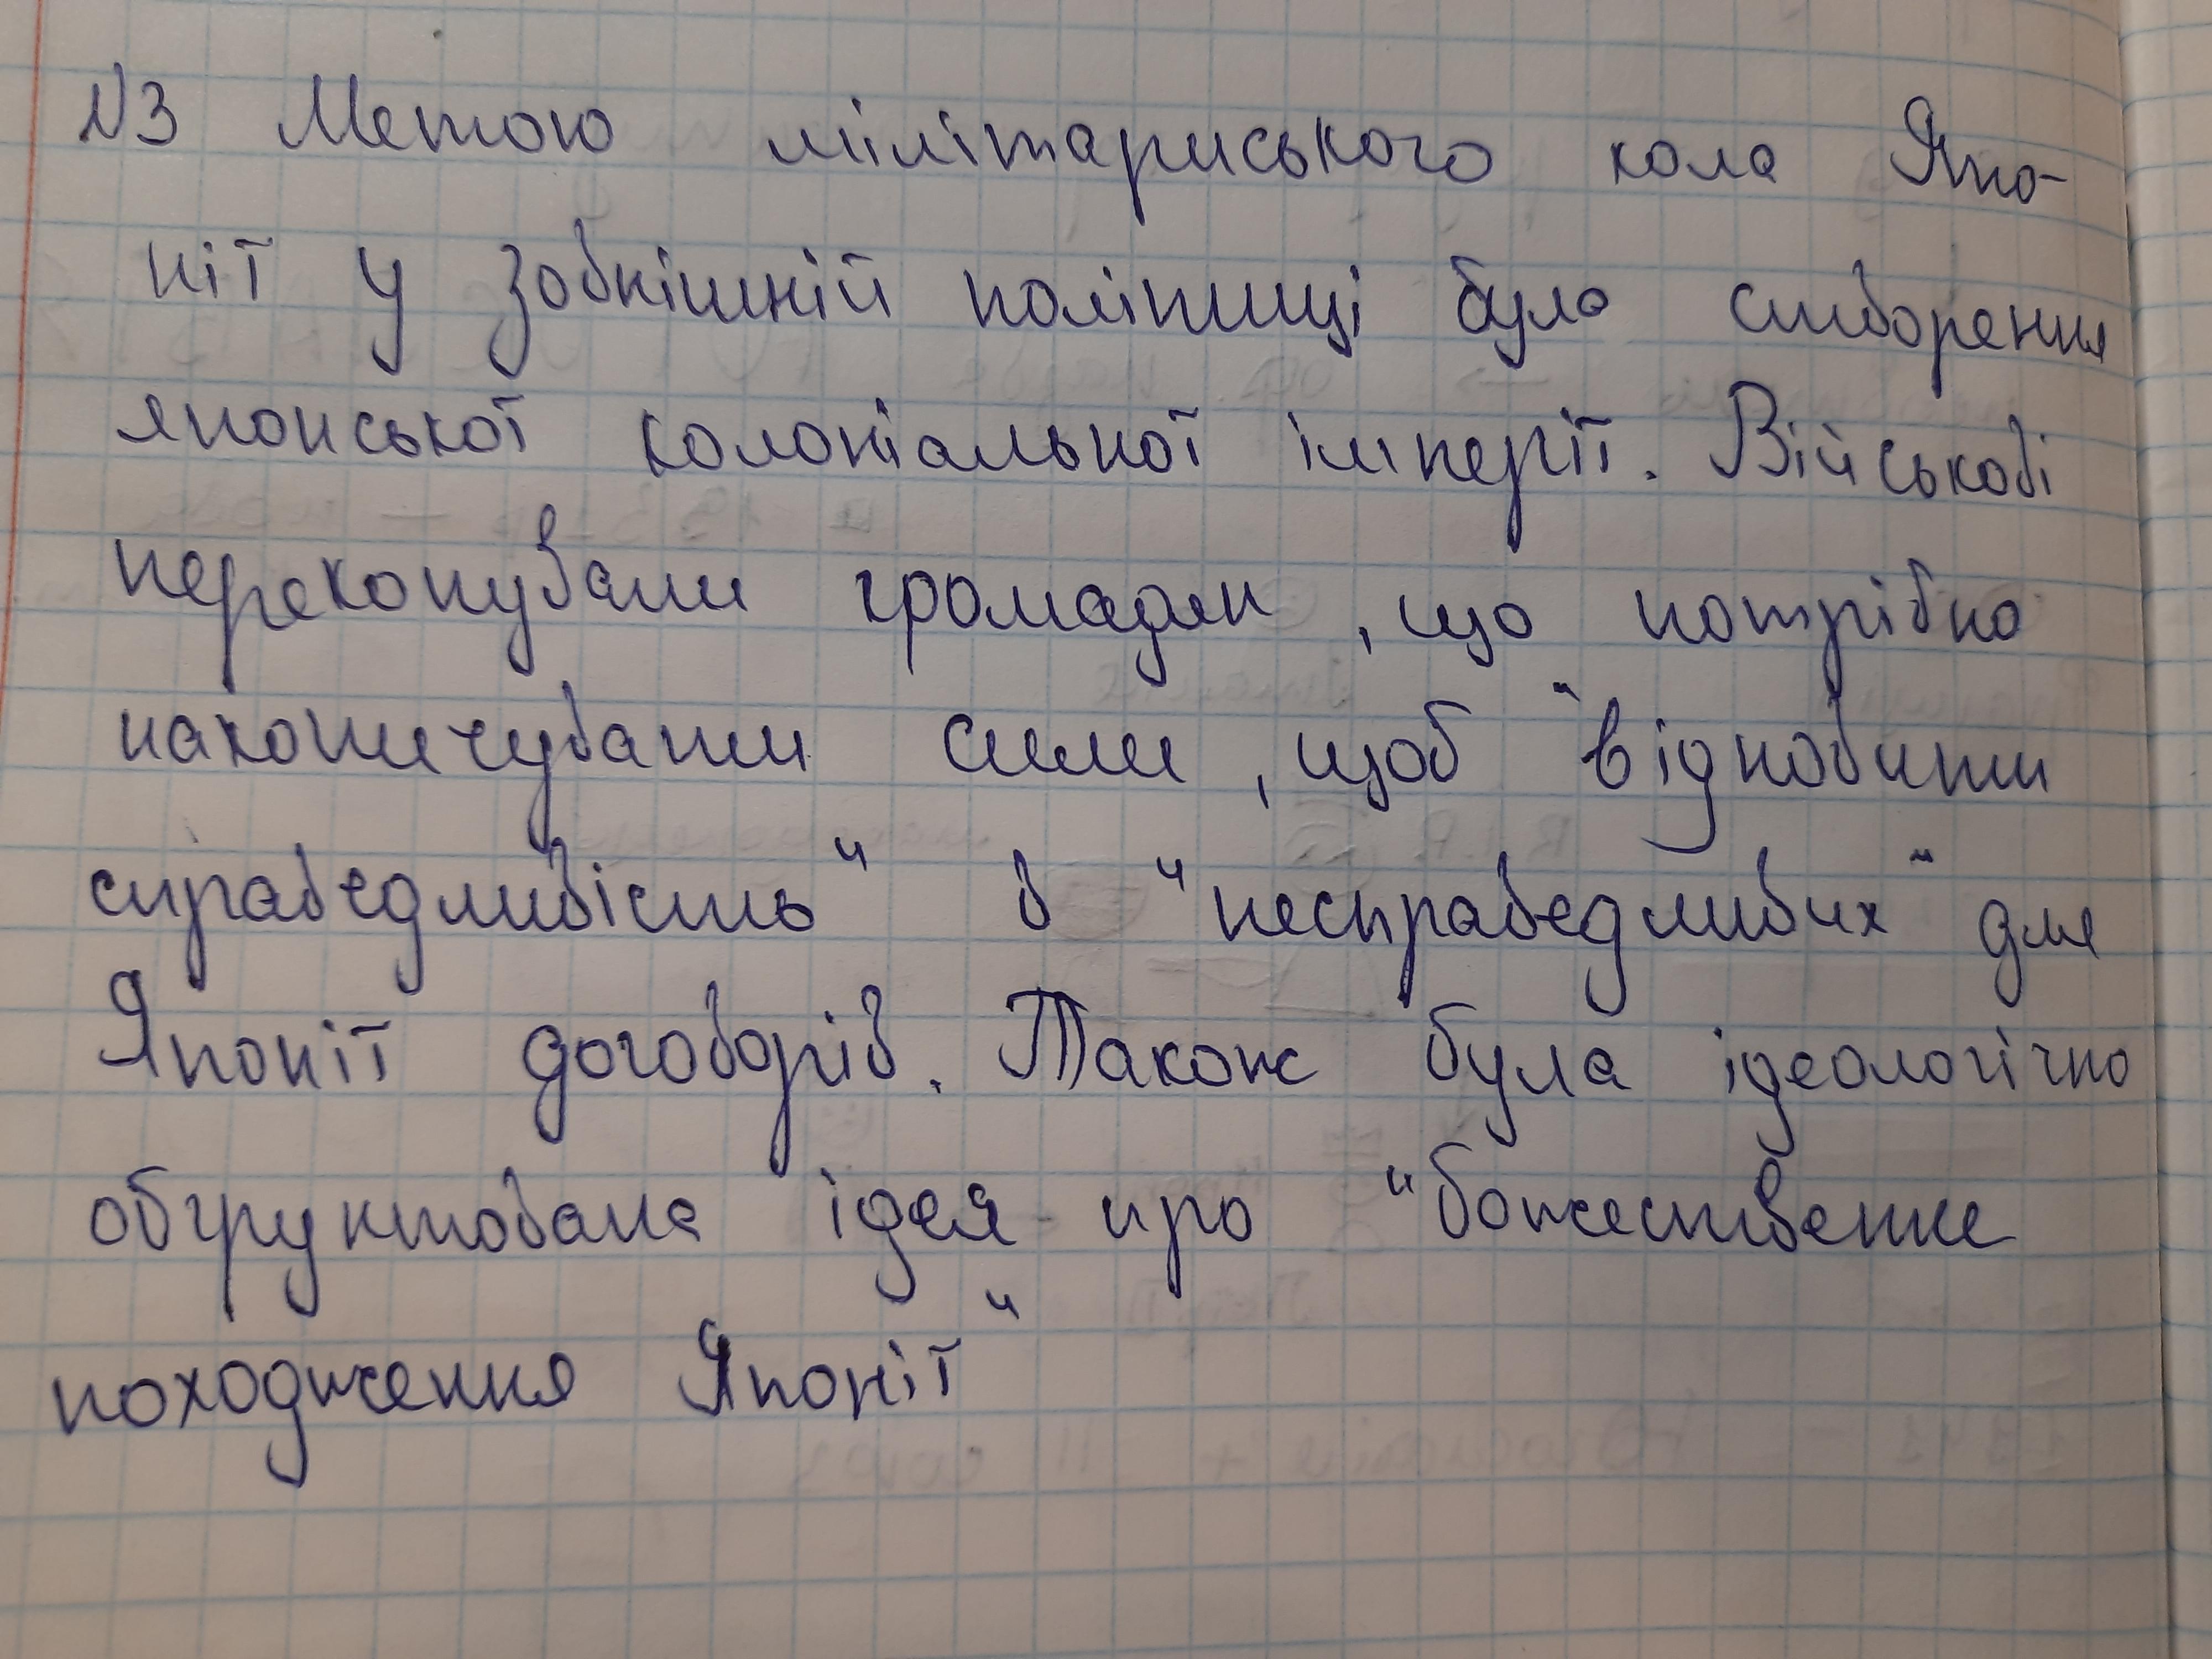 №3 Метою мілітариського кола Япо-
нії у зовнішній політиці була створення
японської колоніальної імперії. Військові
переконували громадян, що потрібно
накопичувати сили, щоб "відновити
справедливість" в "несправедливих" для
Японії договорів. Також була ідеологічно
обґрунтована ідея про "божественне
походження Японії"